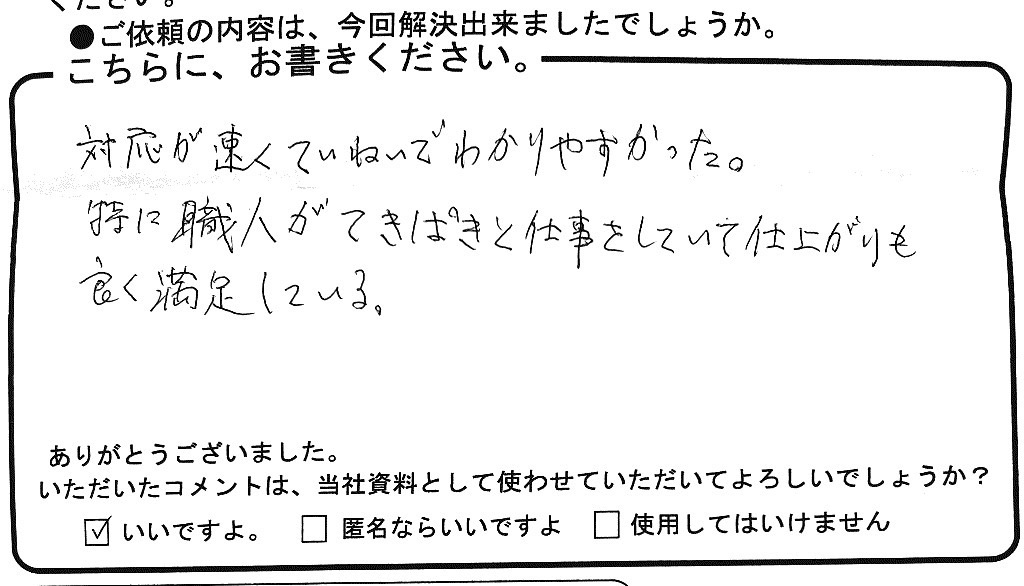 ください。
●ご依頼の内容は、今回解決出来ましたでしょうか。
こちらに、お書きください。
対応が速くていねいでわかりやすかった。
特に職人がてきぱきと仕事をしていて仕上がりも
良く満足している。
ありがとうございました。
いただいたコメントは、当社資料として使わせていただいてよろしいでしょうか？
☑ いいですよ。 □ 匿名ならいいですよ □ 使用してはいけません